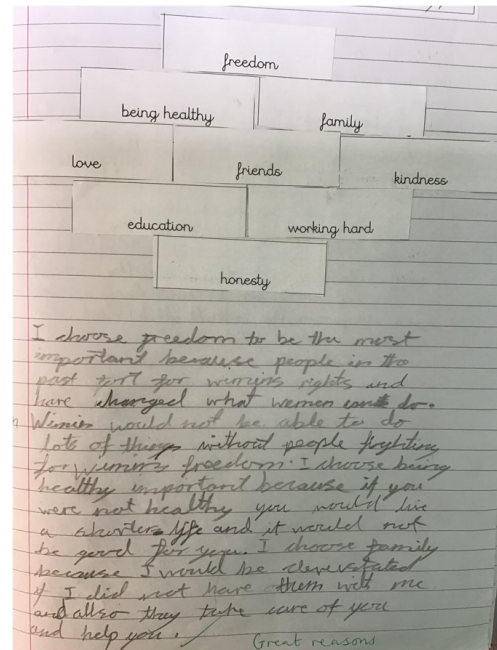 freedom
being healthy family
love friends kindness
education working hard
honesty
I choose freedom to be the most
important because people in the
past fort for wimins rights and
have changed what women do.
Wimin would not be able to do
lots of things without people fighting
for wimins freedom. I choose being
healthy important because if you
were not healthy you would live
a shorter life and it would not
be good for you. I choose family
because I would be devastated
if I did not have them with me
and allso they take care of you
and help you.
Great reasons